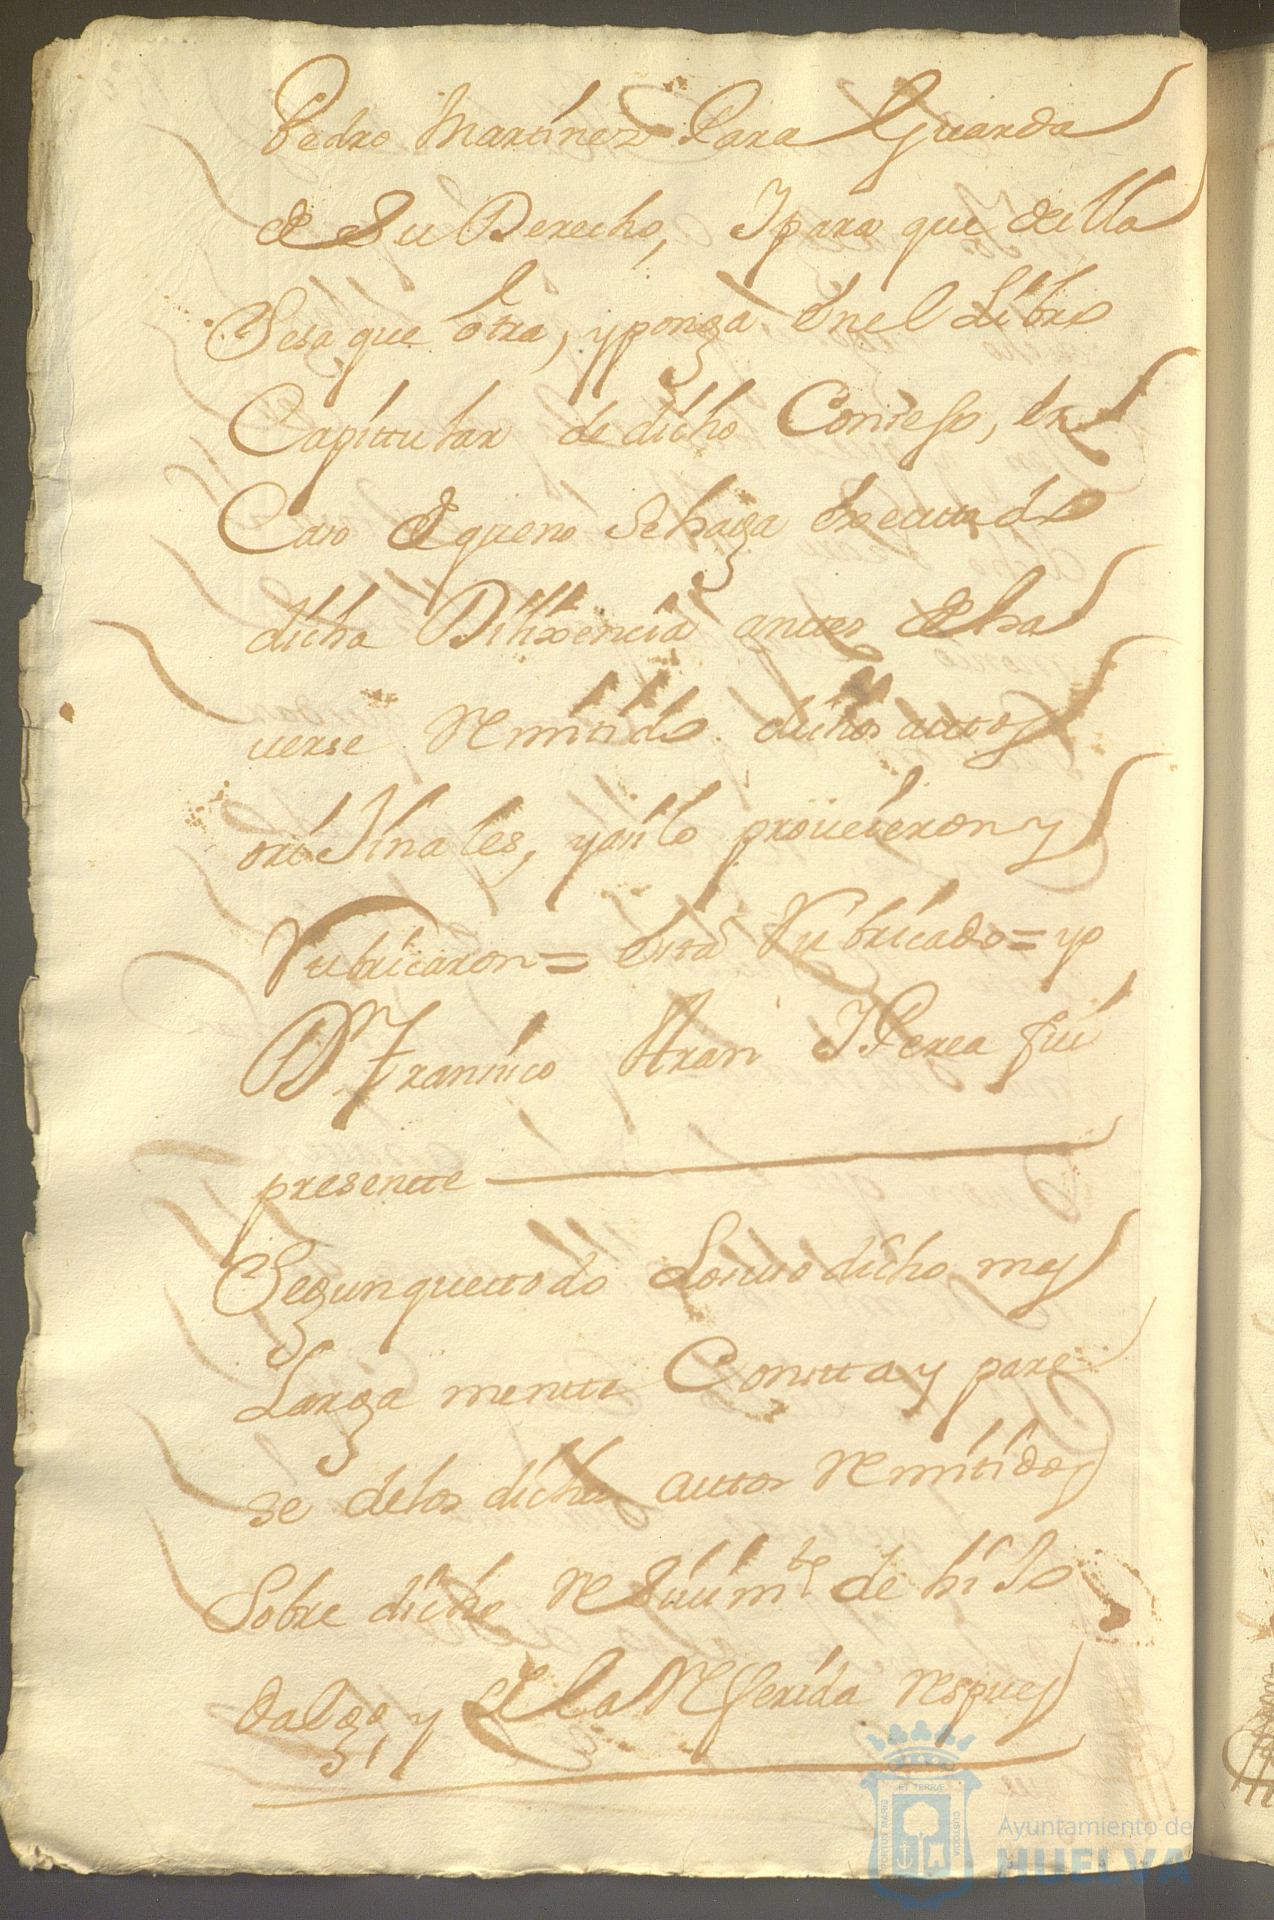 Pedro Martinez Para Guarda
de Su Derecho, Y para que della
Sesaque otra, y ponga en el Libro
Capittular de dicho Consejo, en
Caso de queno Sehaga executado
dicha Dilixencia antes de ha
uerse Remitido dichos auttos
orixinales, y asi lo proueieron y
Rubricaron = esta Rubricado = yo
Dn Francisco Aran Y Perea fui
presentte
Segun quettodo Losuso dicho mas
Larga mentte Constta y pare
se delos dichos auttos Remitidos
Sobre dicho Resiuimto de hijo
dalgo, y de la Referida respues
ET TERRÆ
PORTUS MARIS
CUSTODIA
Ayuntamiento de
HUELVA